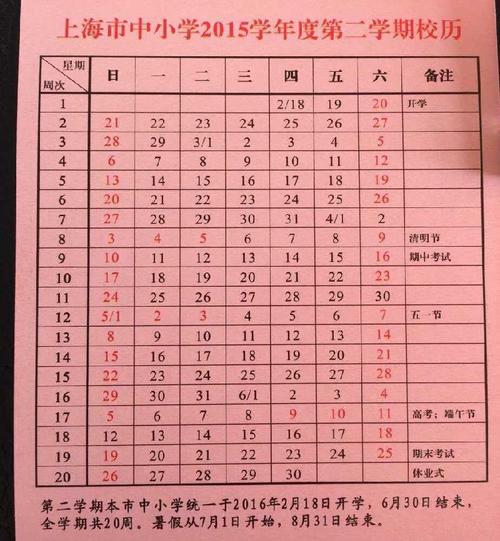 上海市中小学2015学年度第二学期校历
星期 周次 日 一 二 三 四 五 六 备注
1 2/18 19 20 开学
2 21 22 23 24 25 26 27
3 28 29 3/1 2 3 4 5
4 6 7 8 9 10 11 12
5 13 14 15 16 17 18 19
6 20 21 22 23 24 25 26
7 27 28 29 30 31 4/1 2
8 3 4 5 6 7 8 9 清明节
9 10 11 12 13 14 15 16 期中考试
10 17 18 19 20 21 22 23
11 24 25 26 27 28 29 30
12 5/1 2 3 4 5 6 7 五一节
13 8 9 10 11 12 13 14
14 15 16 17 18 19 20 21
15 22 23 24 25 26 27 28
16 29 30 31 6/1 2 3 4
17 5 6 7 8 9 10 11 高考；端午节
18 12 13 14 15 16 17 18
19 19 20 21 22 23 24 25 期末考试
20 26 27 28 29 30 休业式
第二学期本市中小学统一于2016年2月18日开学，6月30日结束，
全学期共20周。暑假从7月1日开始，8月31日结束。